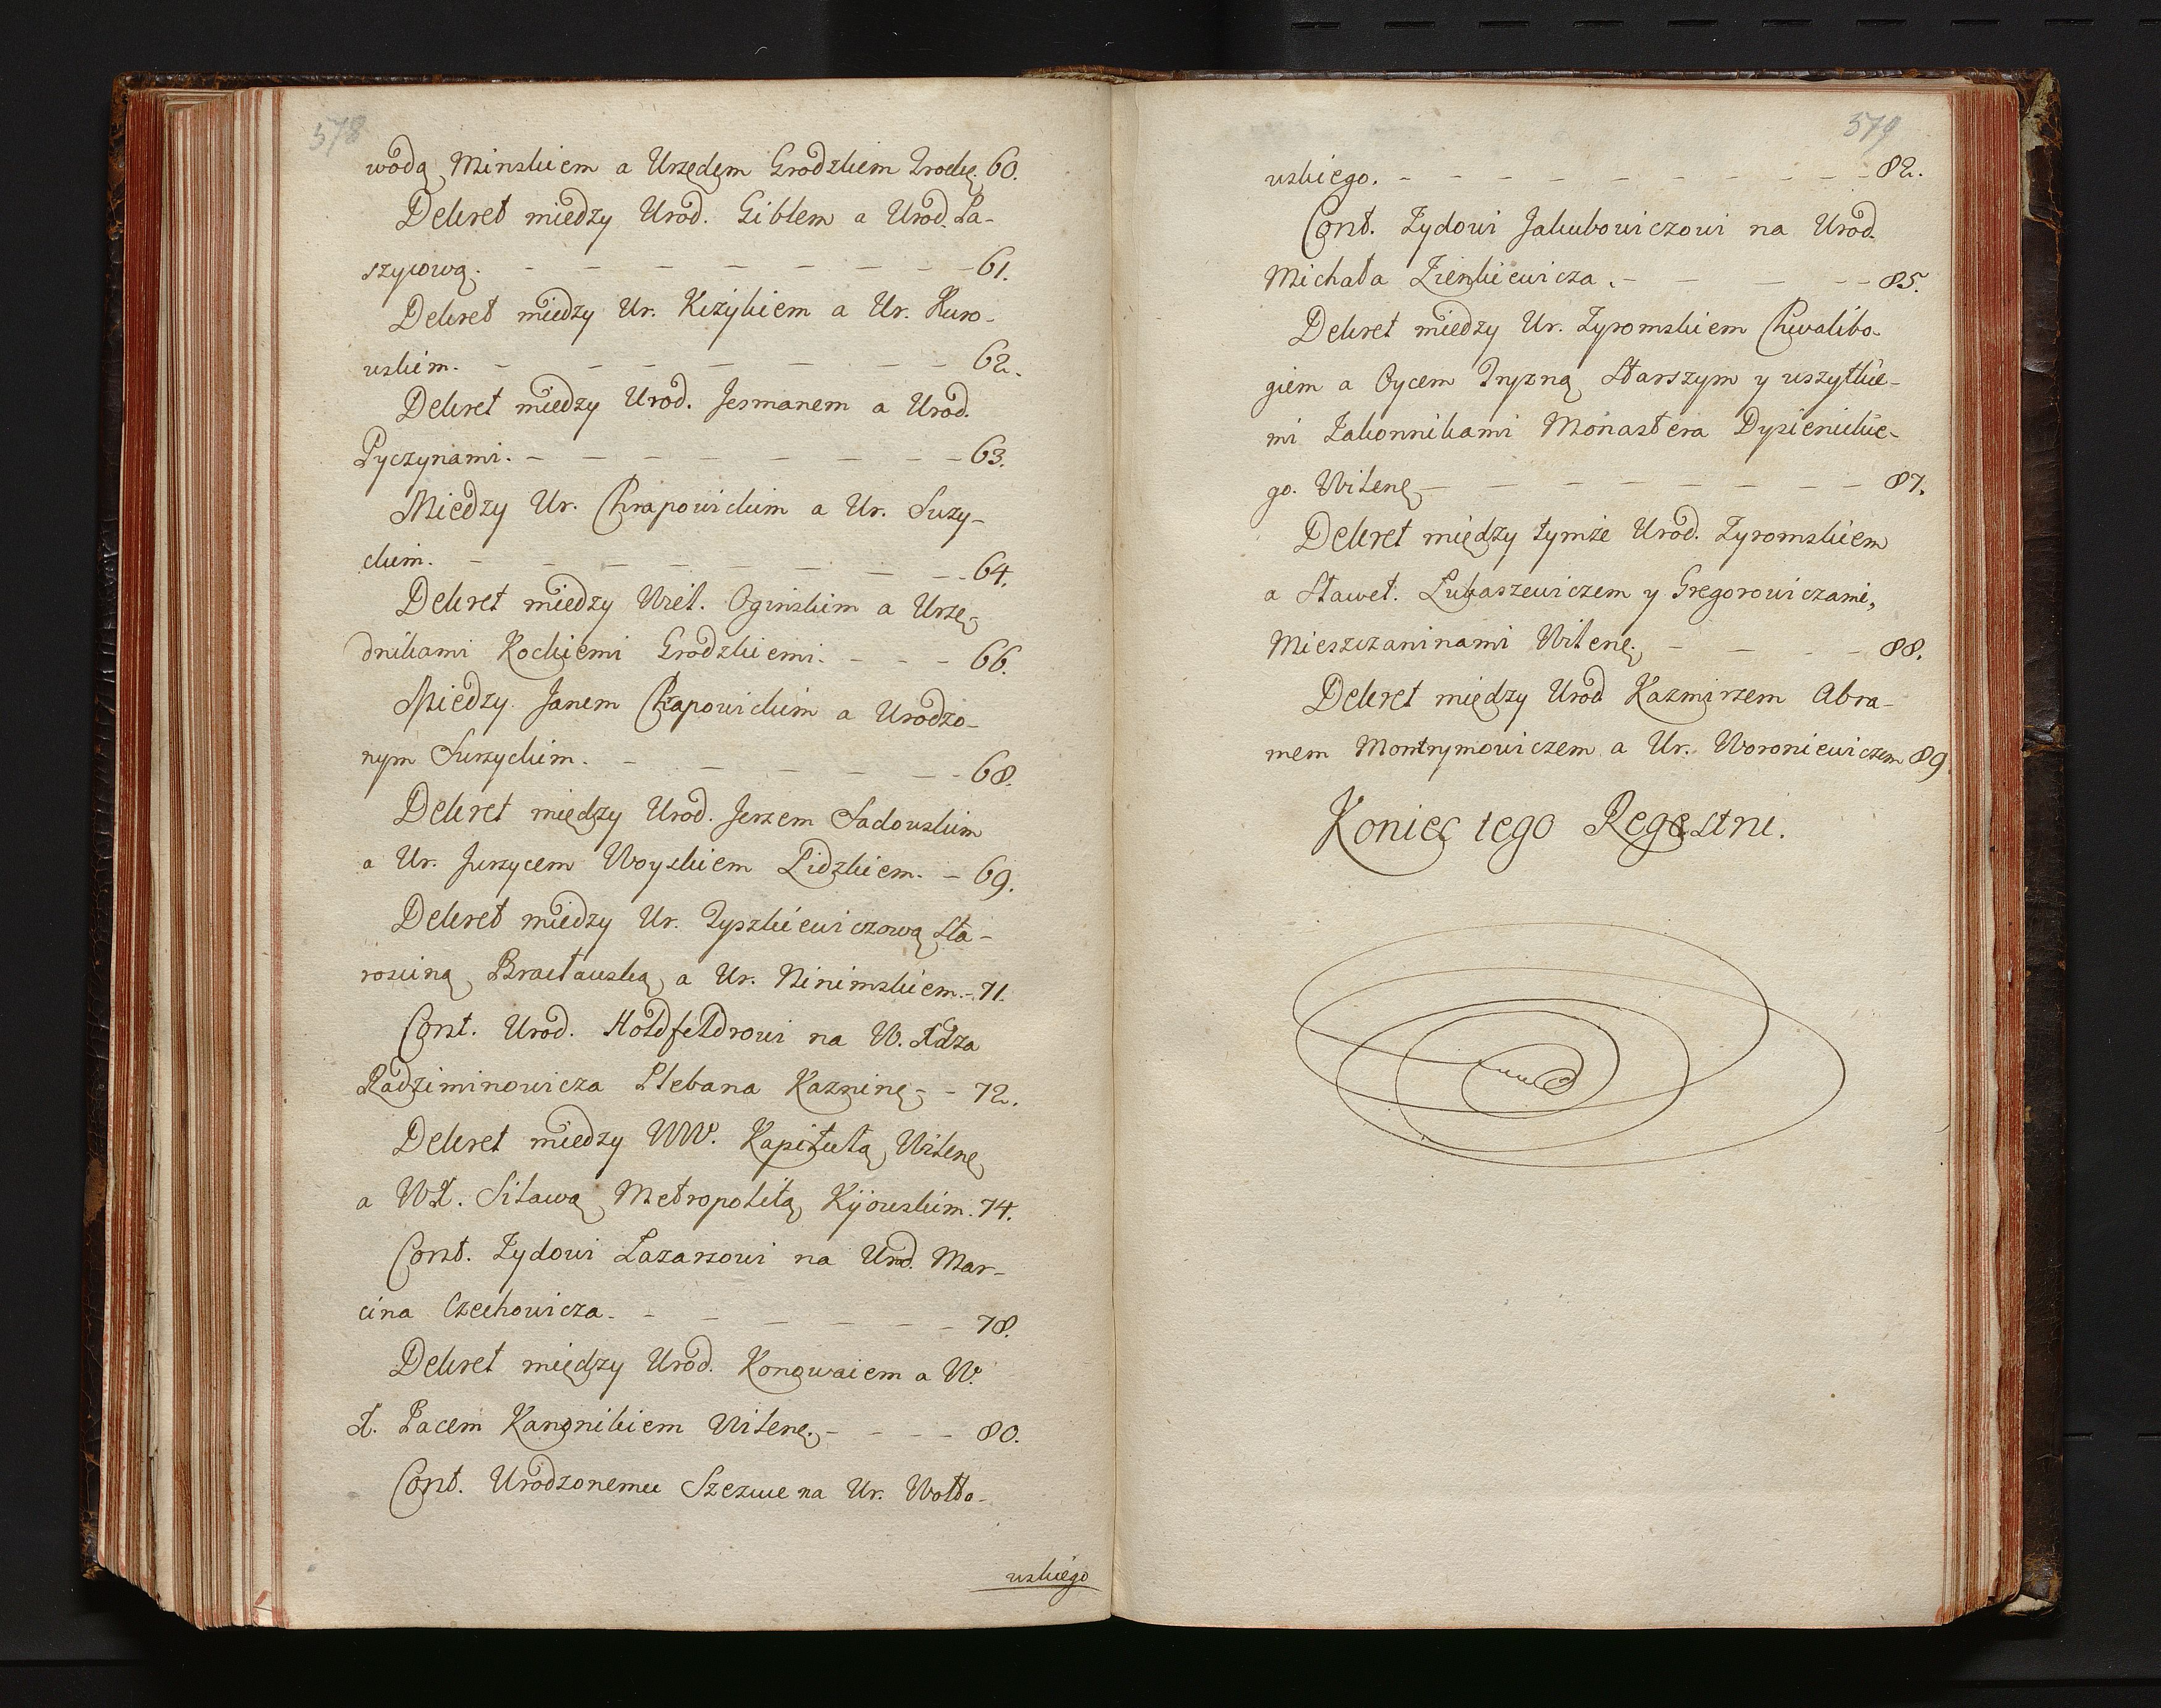 578
wodą Minskiem a Urzędem Grodzkiem Trockę. 60.
Dekret miedzy Urod. Giblem a Urod. Pa-
szycową. - - - - - - - - 61.
Dekret miedzy Ur. Kiżykiem a Ur. Kuro-
wskim. - - - - - - - - 62.
Dekret miedzy Urod. Jesmanem a Urod.
Pyczynami. - - - - - - - - 63.
Miedzy Ur. Chrapowickim a Ur. Suzy-
ckim. - - - - - - - - 64.
Dekret miedzy Wiel. Oginskim a Urzę-
dnikami Kockiemi Grodzkiemi. - - - 66.
Miedzy Janem Chrapowickim a Urodzo-
nym Surzyckim. - - - - - - 68.
Dekret między Urod. Jerzem Sadowskim
a Ur. Jurzycem Woyskiem Lidzkiem. - 69.
Dekret miedzy Ur. Tyszkiewiczową Sta-
rosciną Bracławską, a Ur. Ninimskiem. - 71.
Cont. Urod. Holdfeldrowi na W. Xdza
Radziminowicza Plebana Kazninę - - 72.
Dekret miedzy WW. Kapitułą Wilenę
a WX. Silawą Metropolitą Kijowskim. 74.
Cont. Zydowi Lazarzowi na Urod. Mar-
cina Czechowicza. - - - - - - 78.
Dekret między Urod. Konowaiem a W.
X. Pacem Kanonikiem Wilenę. - - - - 80.
Cont. Urodzonemu Szezwe na Ur. Wołło-
wskiego
579
wskiego. - - - - - - - - - - 82.
Cont. Zydowi Jakubowiczowi na Urod.
Michała Zienkiewicza. - - - - - 85.
Dekret miedzy Ur. Zyromskiem Chwalibo-
giem a Oycem Tryzną Starszym y wszytkie-
mi Zakonnikami Monastera Dysienskie-
go. Wilenę - - - - - - - - 87.
Dekret między tymże Urod. Zyromskiem
a Sławet. Lukaszewiczem y Gregorowiczami,
Mieszczaninami Wilenę. - - - - 88.
Dekret między Urod Kazmirzem Abra-
mem Montrymowiczem a Ur. Woroniewiczem 89.
Koniec tego Regestru.